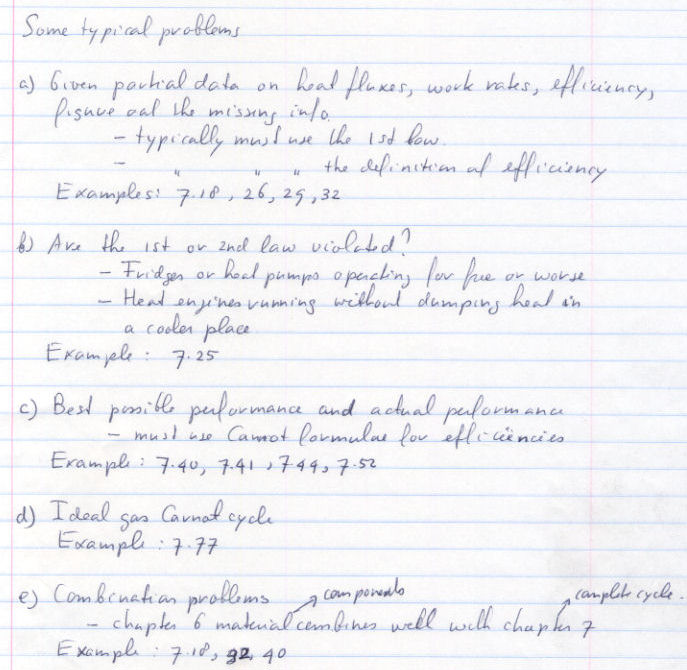 Some typical problems
a) Given partial data on heat fluxes, work rates, efficiency,
figure out the missing info.
- typically must use the 1st law.
- " " " the definition of efficiency
Examples: 7.18, 26, 29, 32
b) Are the 1st or 2nd law violated?
- Fridges or heat pumps operating for free or worse
- Heat engines running without dumping heat in
a cooler place
Example: 7.25
c) Best possible performance and actual performance
- must use Carnot formulae for efficiencies
Example: 7.40, 7.41, 7.44, 7.52
d) Ideal gas Carnot cycle
Example: 7.77
e) Combination problems components complete cycle.
- chapter 6 material combines well with chapter 7
Example: 7.18, 32, 40